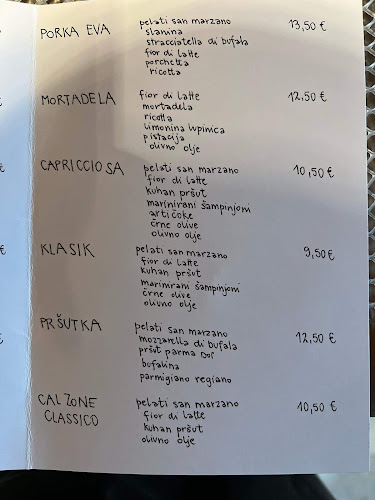 PORKA EVA pelati san marzano 13,50 €
slanina
stracciatella di bufala
fior di latte
porchetta
ricotta
MORTADELA fior di latte 12,50 €
mortadela
ricotta
limonina lupinica
pistacija
olivno olje
CAPRICCIOSA pelati san marzano 10,50 €
fior di latte
kuhan pršut
marinirani šampinjoni
artičoke
črne olive
olivno olje
KLASIK pelati san marzano 9,50 €
fior di latte
kuhan pršut
marinirani šampinjoni
črne olive
olivno olje
PRŠUTKA pelati san marzano 12,50 €
mozzarella di bufala
pršut parma DOP
bufalina
parmigiano regiano
CALZONE pelati san marzano 10,50 €
CLASSICO fior di latte
kuhan pršut
olivno olje